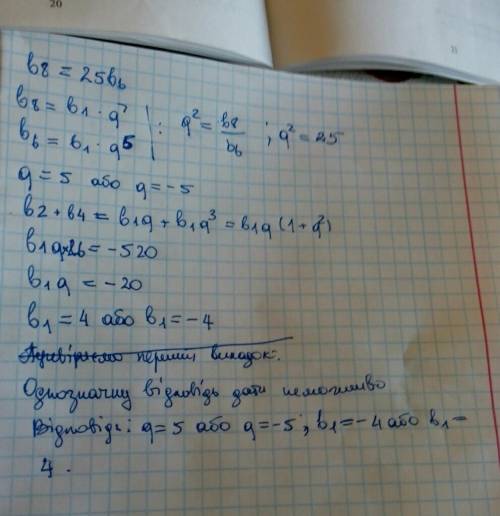 20
b8 = 25b6
b8 = b1 · q⁷ | : q² = b8/b6 ; q² = 25
b6 = b1 · q5
q = 5 або q = -5
b2 + b4 = b1q + b1q³ = b1q (1 + q²)
b1q·26 = -520
b1q = -20
b1 = 4 або b1 = -4
Перевіряємо перший випадок:
Однозначну відповідь дати неможливо
Відповідь: q = 5 або q = -5 ; b1 = -4 або b1 =
4 .